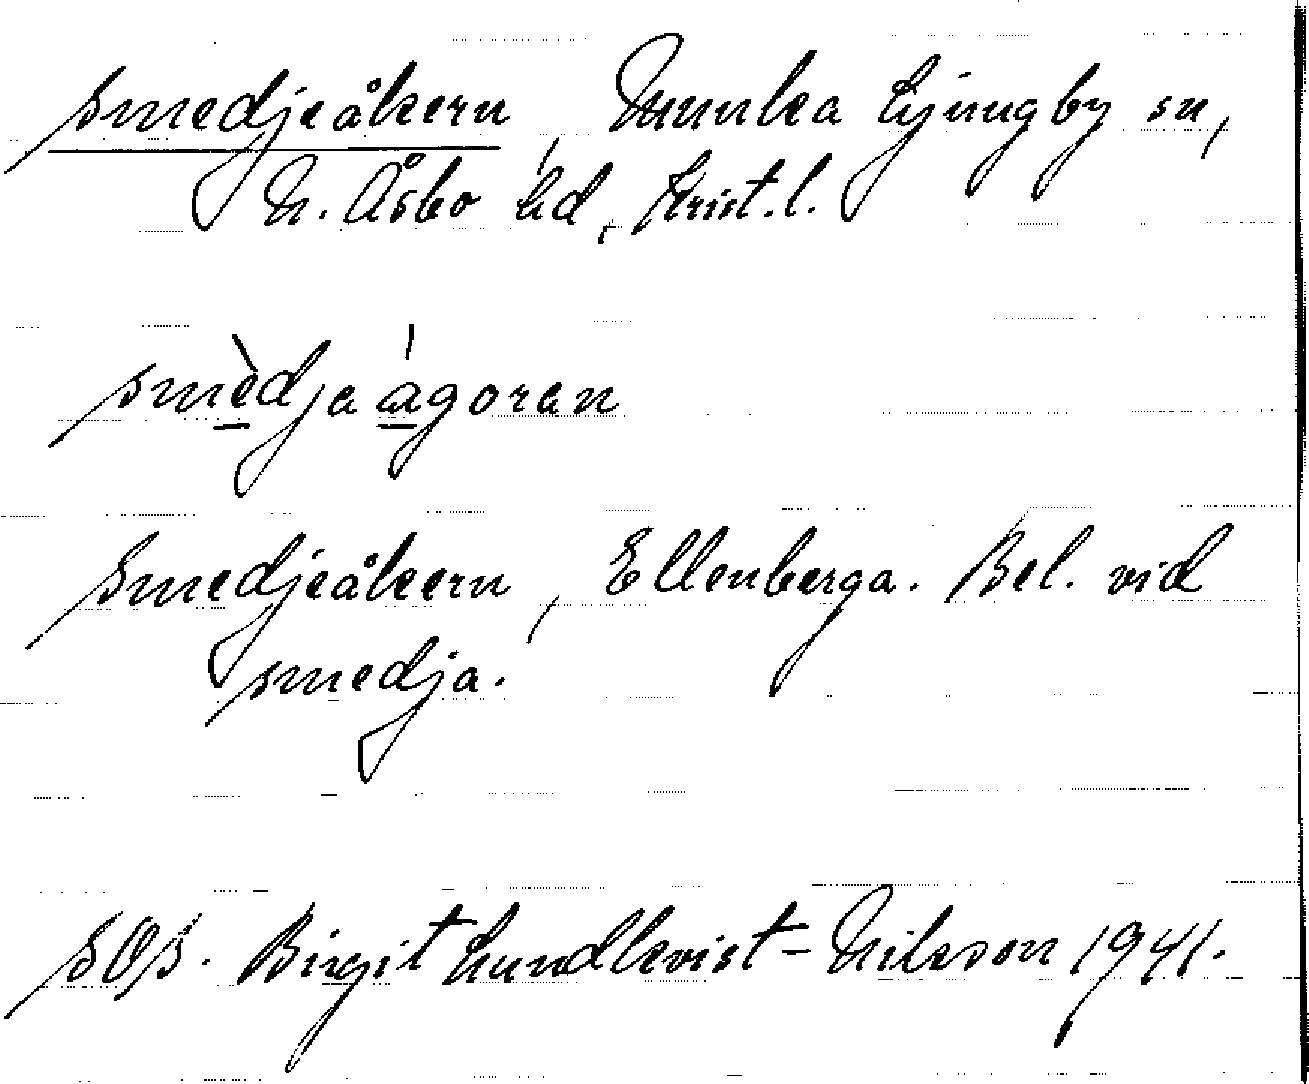 Smedjeåkern, Munka Ljungby sn,
N. Åsbo hd, Krist. l.
smèdja ágoran
Smedjeåkern, Ellenberga. Bel. vid
smedja.
SOS. Birgit Lundkvist-Nilsson 1941.